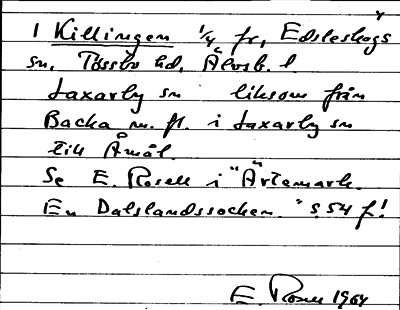 1 Killingen 1/4 fr, Edsleskogs
sn, Tössbo hd, Älvsb. l.
Laxarby sn liksom från
Backa m. fl. i Laxarby sn
till Åmål.
Se E. Rosell i "Ärtemark.
En Dalslandssocken." s. 54 f!
E. Rosell 1964